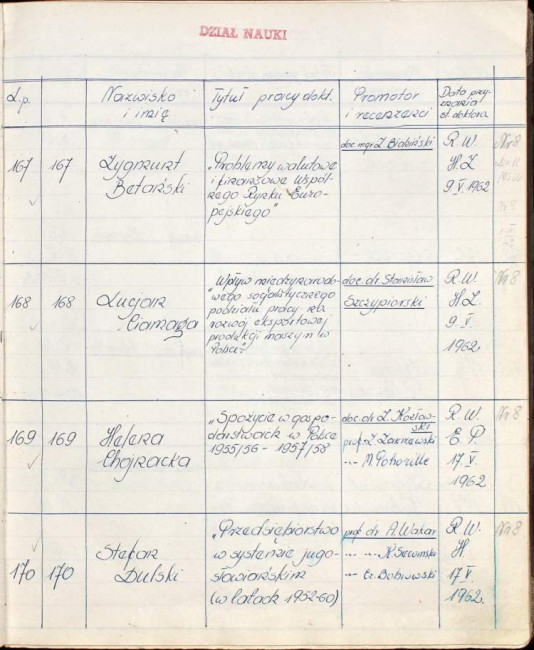 DZIAŁ NAUKI
L.p.
Nazwisko
i imię
Tytuł pracy dokt.
Promotor
i recenzenci
Data przy-
znania
st. doktora
167 167
Zygmunt
Betański
"Problemy walutowe
i finansowe Wspól-
nego Rynku Euro-
pejskiego"
doc. mgr Z.
R.W.
H.Z.
9 V 1962
Nr 8
168 168
Lucjan
Ciamaga
"Wpływ międzynarodo-
wego socjalistycznego
podziału pracy na
rozwój eksportowej
produkcji maszyn w
Polsce"
doc. dr Stanisław
Szczypiorski
R.W.
H.Z.
9 V.
1962
Nr 8
169 169
Helena
Chojnacka
"Spożycie w gospo-
darstwach w Polsce
1955/56 - 1957/58"
doc. dr L. Kozłow-
ski
prof. Z.
-"- M. Pohorille
R.W.
E.P.
17 V.
1962
Nr 8
170 170
Stefan
Dulski
"Przedsiębiorstwo
w systemie jugo-
słowiańskim
(w latach 1952-60)
prof. dr A. Wakar
-"- -"- K. Secomski
-"- Cz. Bobrowski
R.W.
H
17 V
1962.
Nr 8